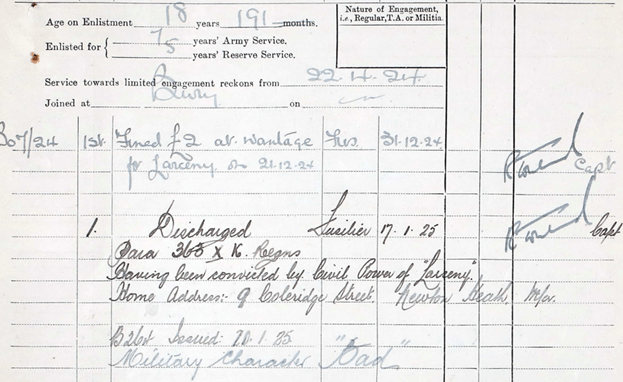 Nature of Engagement,
i.e., Regular, T.A. or Militia.
Age on Enlistment 18 years 191 months.
Enlisted for { 7 years' Army Service.
5 years' Reserve Service.
Service towards limited engagement reckons from 22.4.24
Joined at Bury on
307/24 1st Fined £2 at Wantage Fus. 31.12.24
for Larceny on 21.12.24
Capt
1. Discharged Fusilier 17.1.25 Capt
Para 363 X K. Regns
Having been convicted by Civil Power of "Larceny".
Home Address:- 9 Coleridge Street, Newton Heath, M/cr.
Issued: 20.1.25
Military Character "Bad"